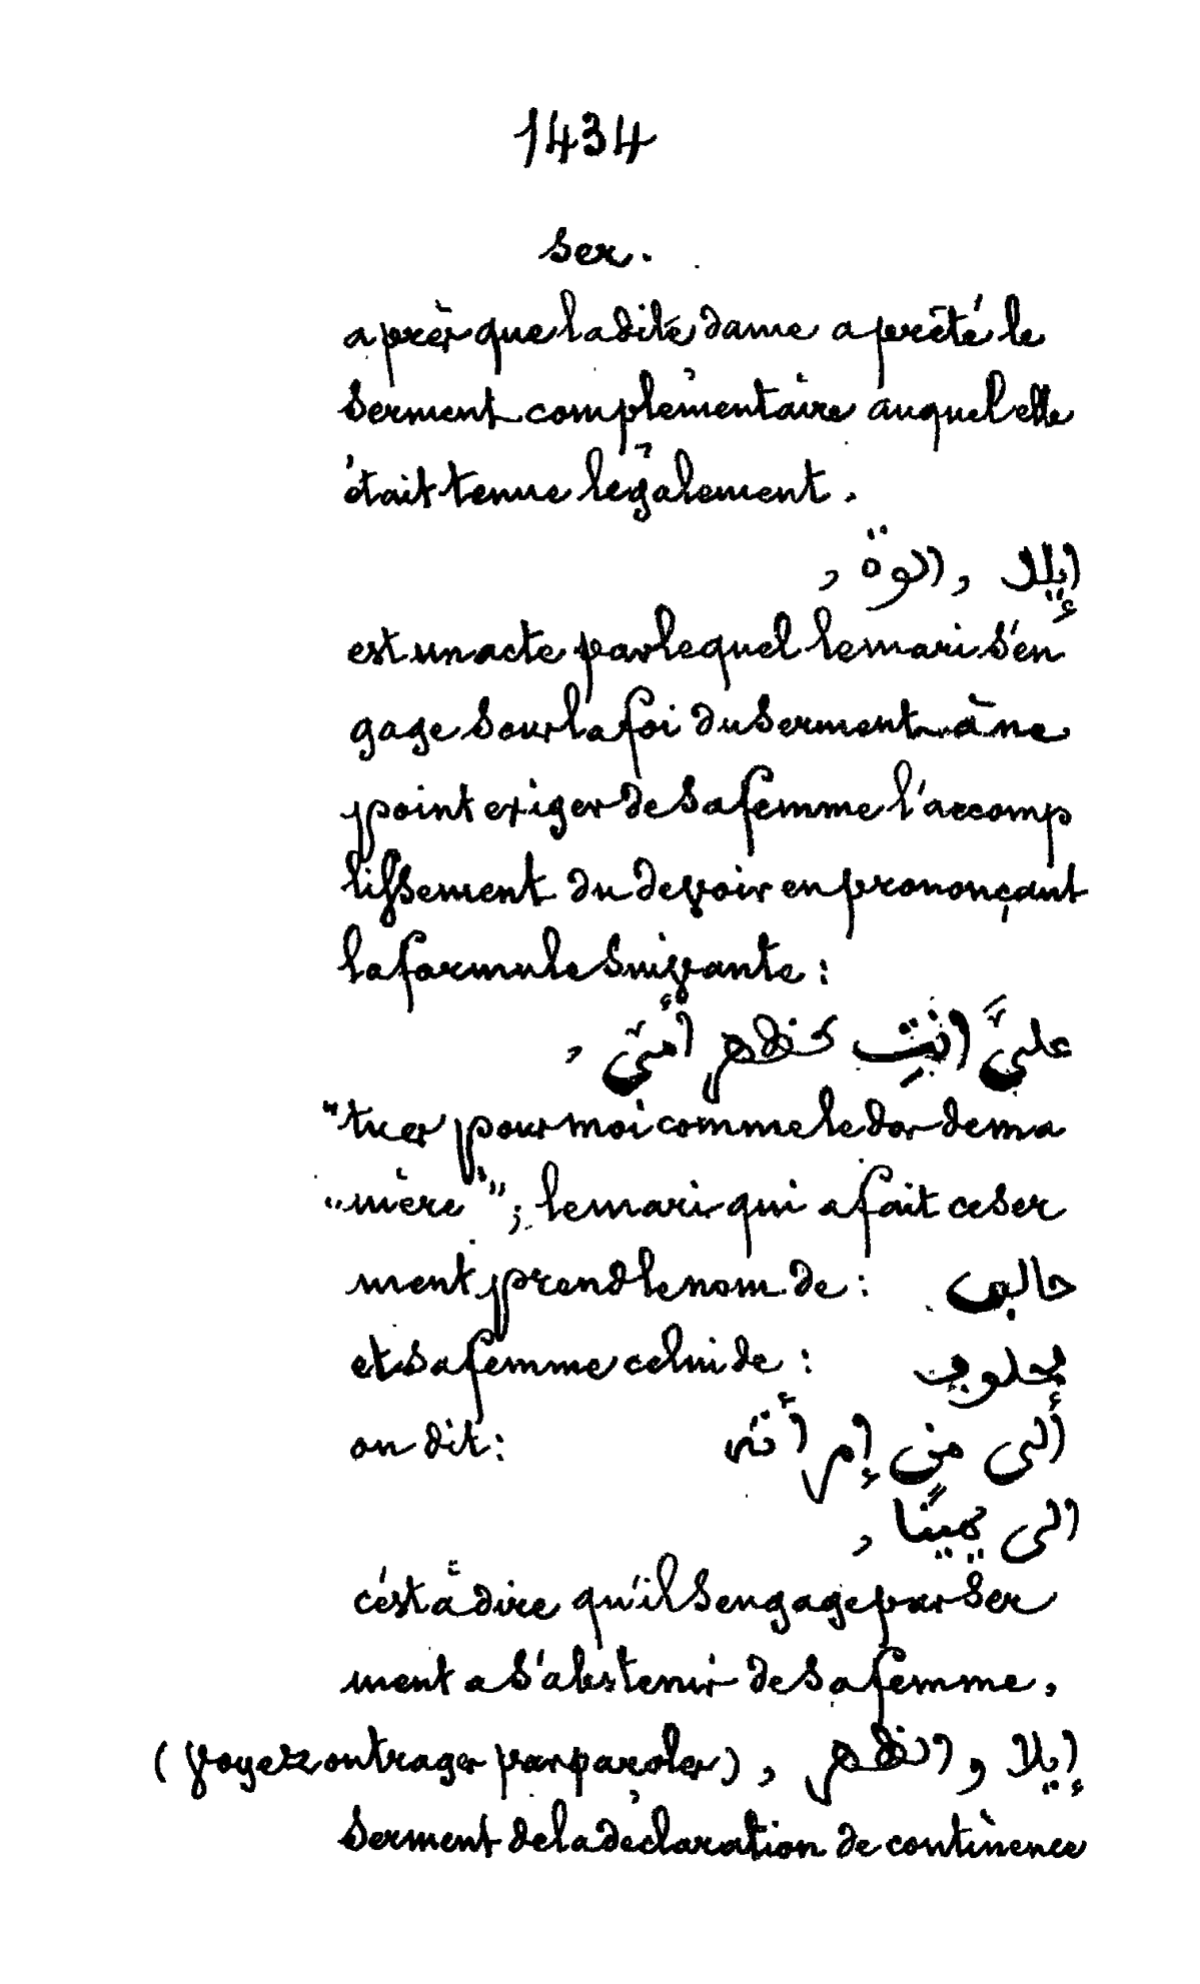 1434
ser.
après que ladite dame a prêté le
serment complémentaire auquel elle
était tenue légalement.
إيلا , الوة ,
est un acte par lequel le mari s'en
gage sous la foi du serment à ne
point exiger de sa femme l'accomp
lissement du devoir en prononçant
la formule suivante :
عليَّ انتِ كظهر أمّي ,
"tu es pour moi comme le dos de ma
"mère"; le mari qui a fait ce ser
ment prend le nom de : حالف
et sa femme celui de :
on dit : ألى من إمرأته
الى يمينًا ,
c'est à dire qu'il s'engage par ser
ment a s'abstenir de sa femme,
(voyez outrager par paroles) , إيلا و الظهر
serment de la déclaration de continence